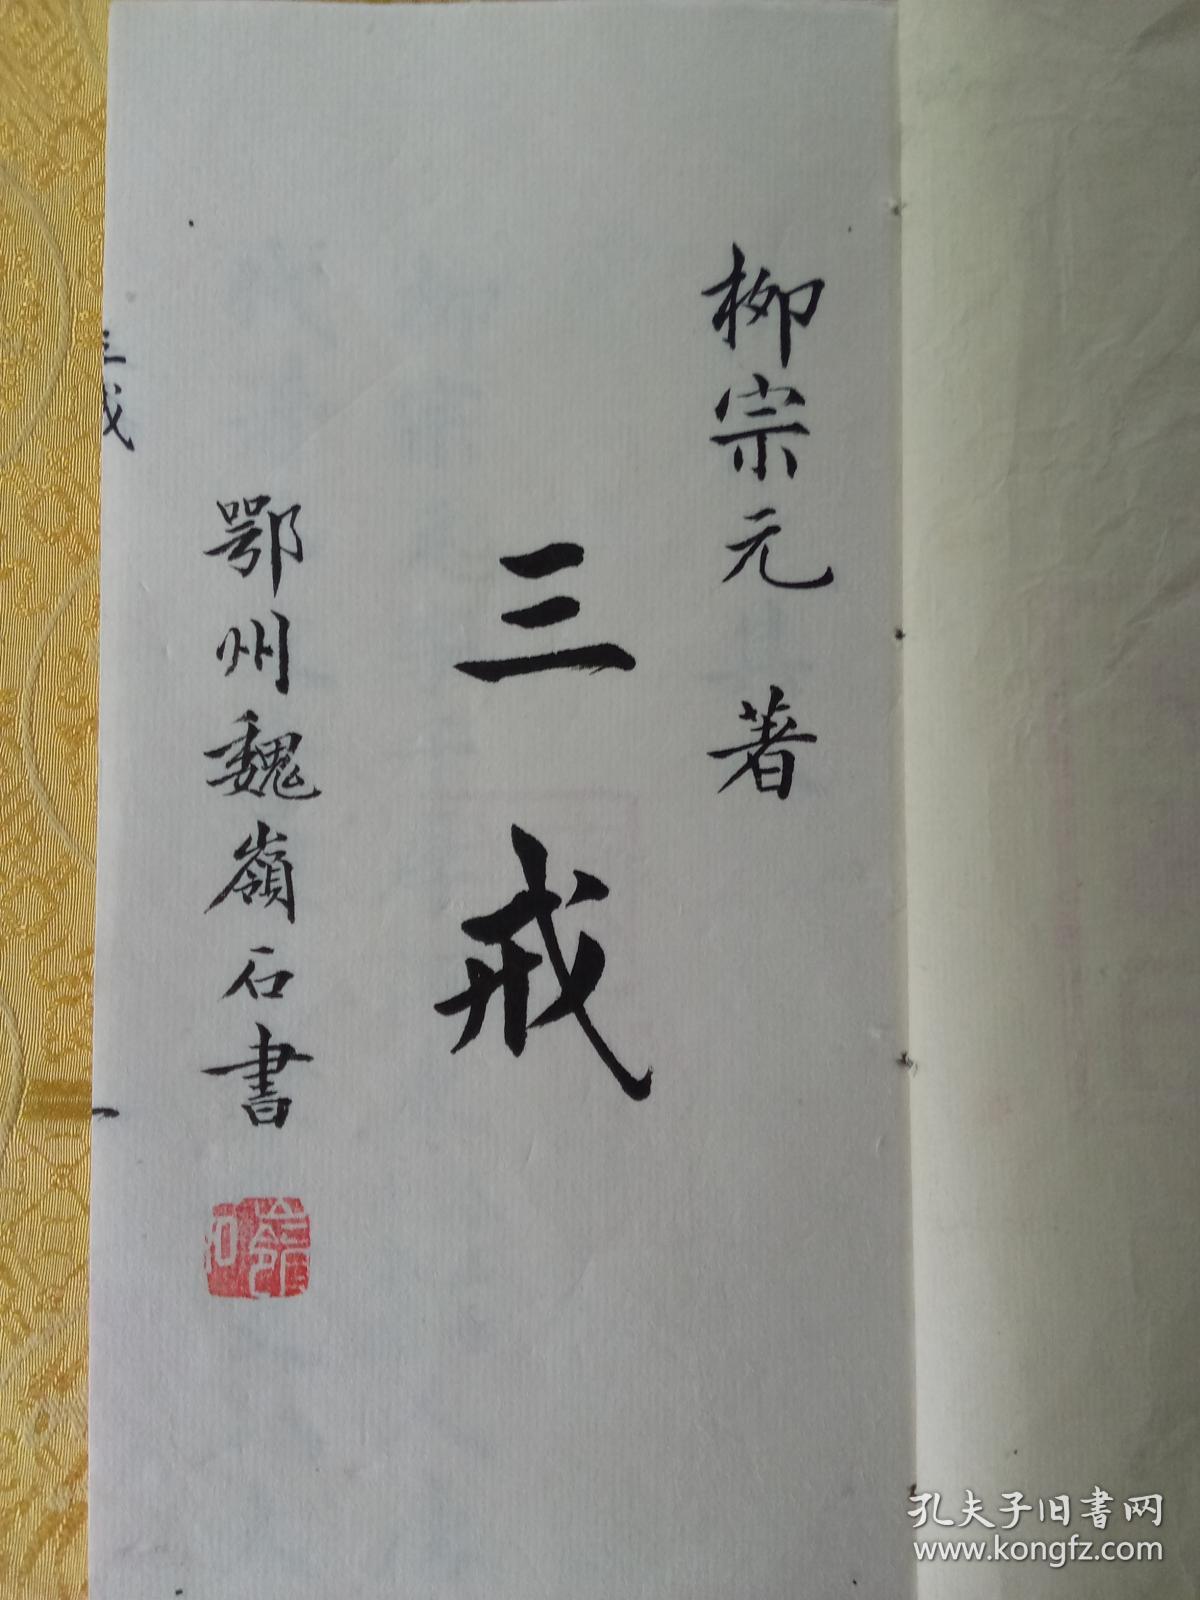 柳宗元 著
三戒
鄂州魏嶺石書
嶺石
三戒
一
孔夫子旧书网
www.kongfz.com